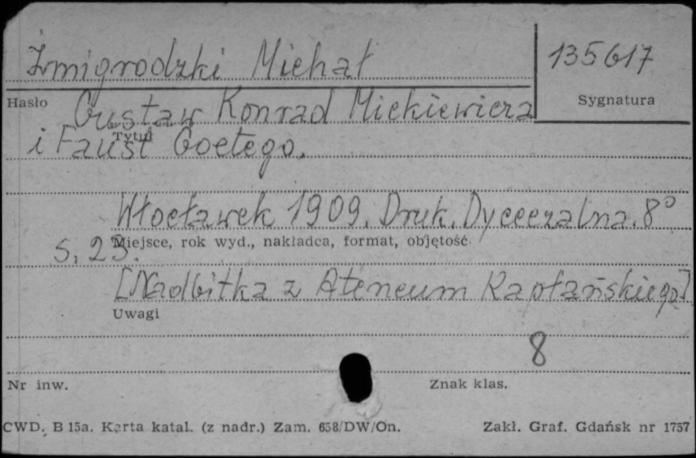 Żmigrodzki Michał
135617
Hasło
Sygnatura
Gustaw Konrad Mickiewicza
Tytuł
i Faust Goetego.
Włocławek 1909. Druk. Dyecezalna. 8°
Miejsce, rok wyd., nakładca, format, objętość
S. 23.
[Nadbitka z Ateneum Kapłańskiego]
Uwagi
8
Nr inw.
Znak klas.
CWD. B 15a. Karta katal. (z nadr.) Zam. 658/DW/On.
Zakł. Graf. Gdańsk nr 1757